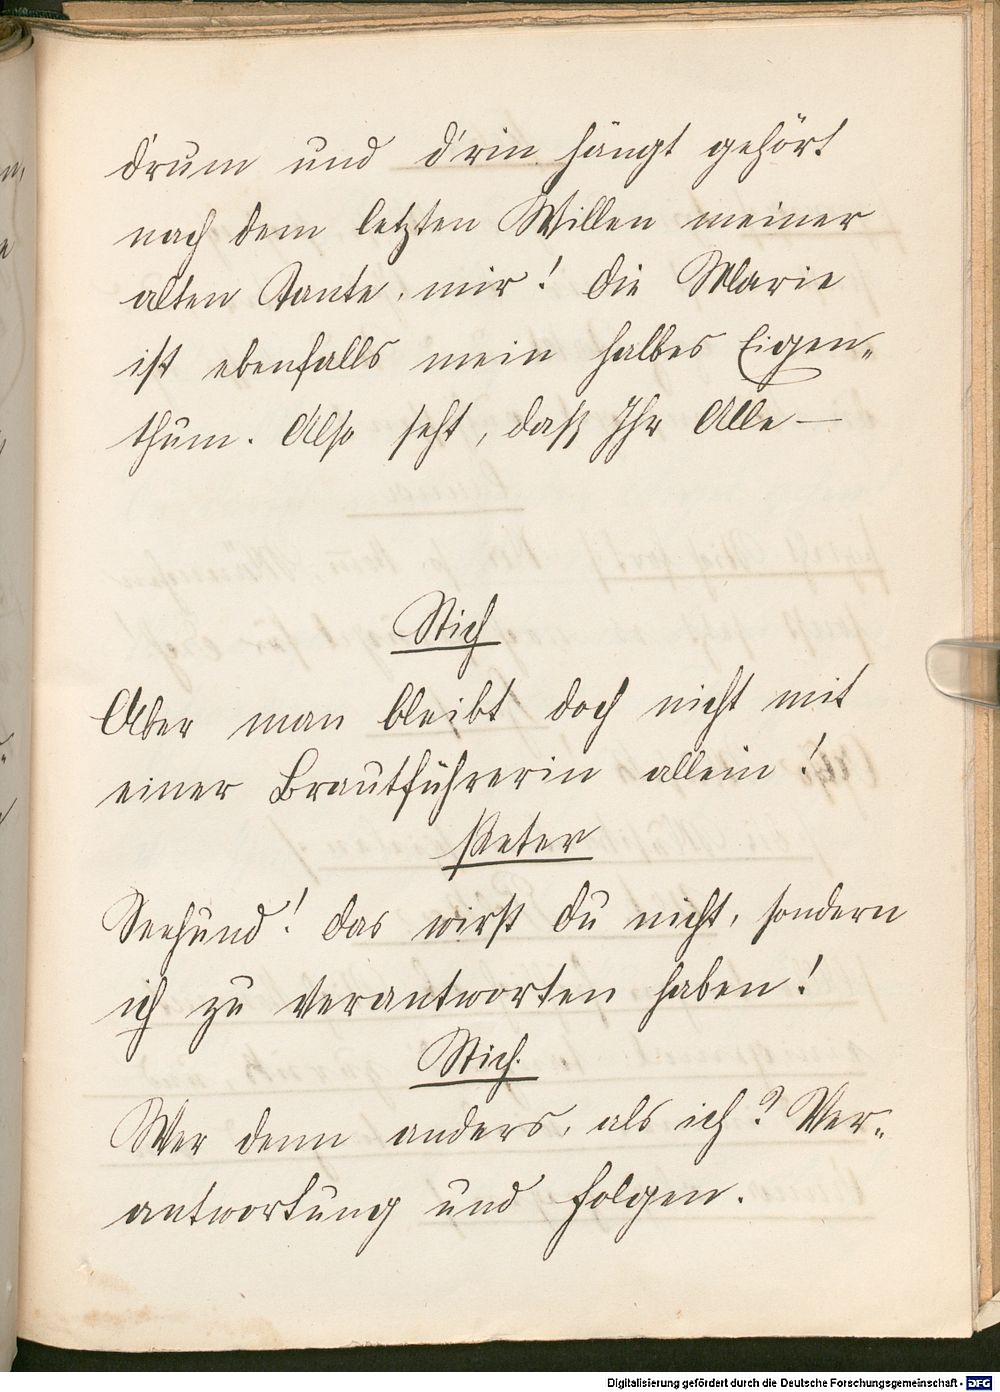 d'rum und d'rin hängt gehört
nach dem letzten Willen meiner
alten Tante, mir! Die Marie
ist ebenfalls mein halbes Eigen-
thum. Also seht, daß Ihr Alle —
Stich
Aber man bleibt doch nicht mit
einer Brautführerin allein!
Peter
Seehund! das wirst du nicht, sondern
ich zu verantworten haben!
Stich.
Wer denn anders, als ich? Ver-
antwortung und Folgen.
Digitalisierung gefördert durch die Deutsche Forschungsgemeinschaft - DFG